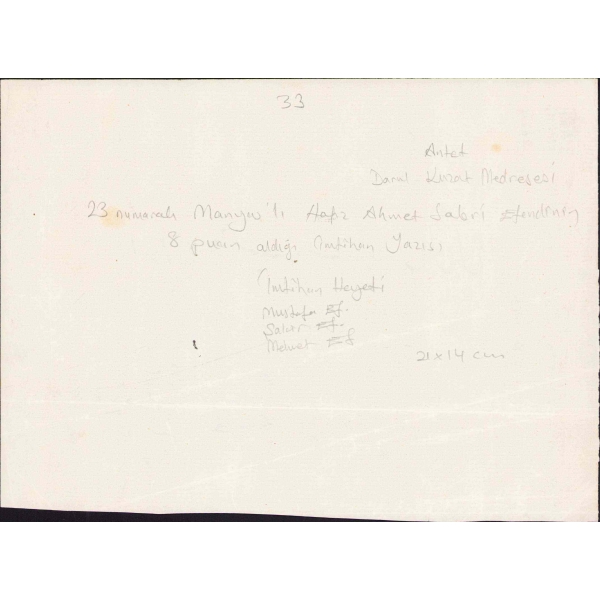 33
Antet
Darul Kurat Medresesi
23 numaralı Manyas'lı Hafız Ahmet Sabri Efendinin
8 puan aldığı imtihan Yazısı
İmtihan Heyeti
Mustafa Ef.
Ef.
Mehmet Ef
21 x 14 cm